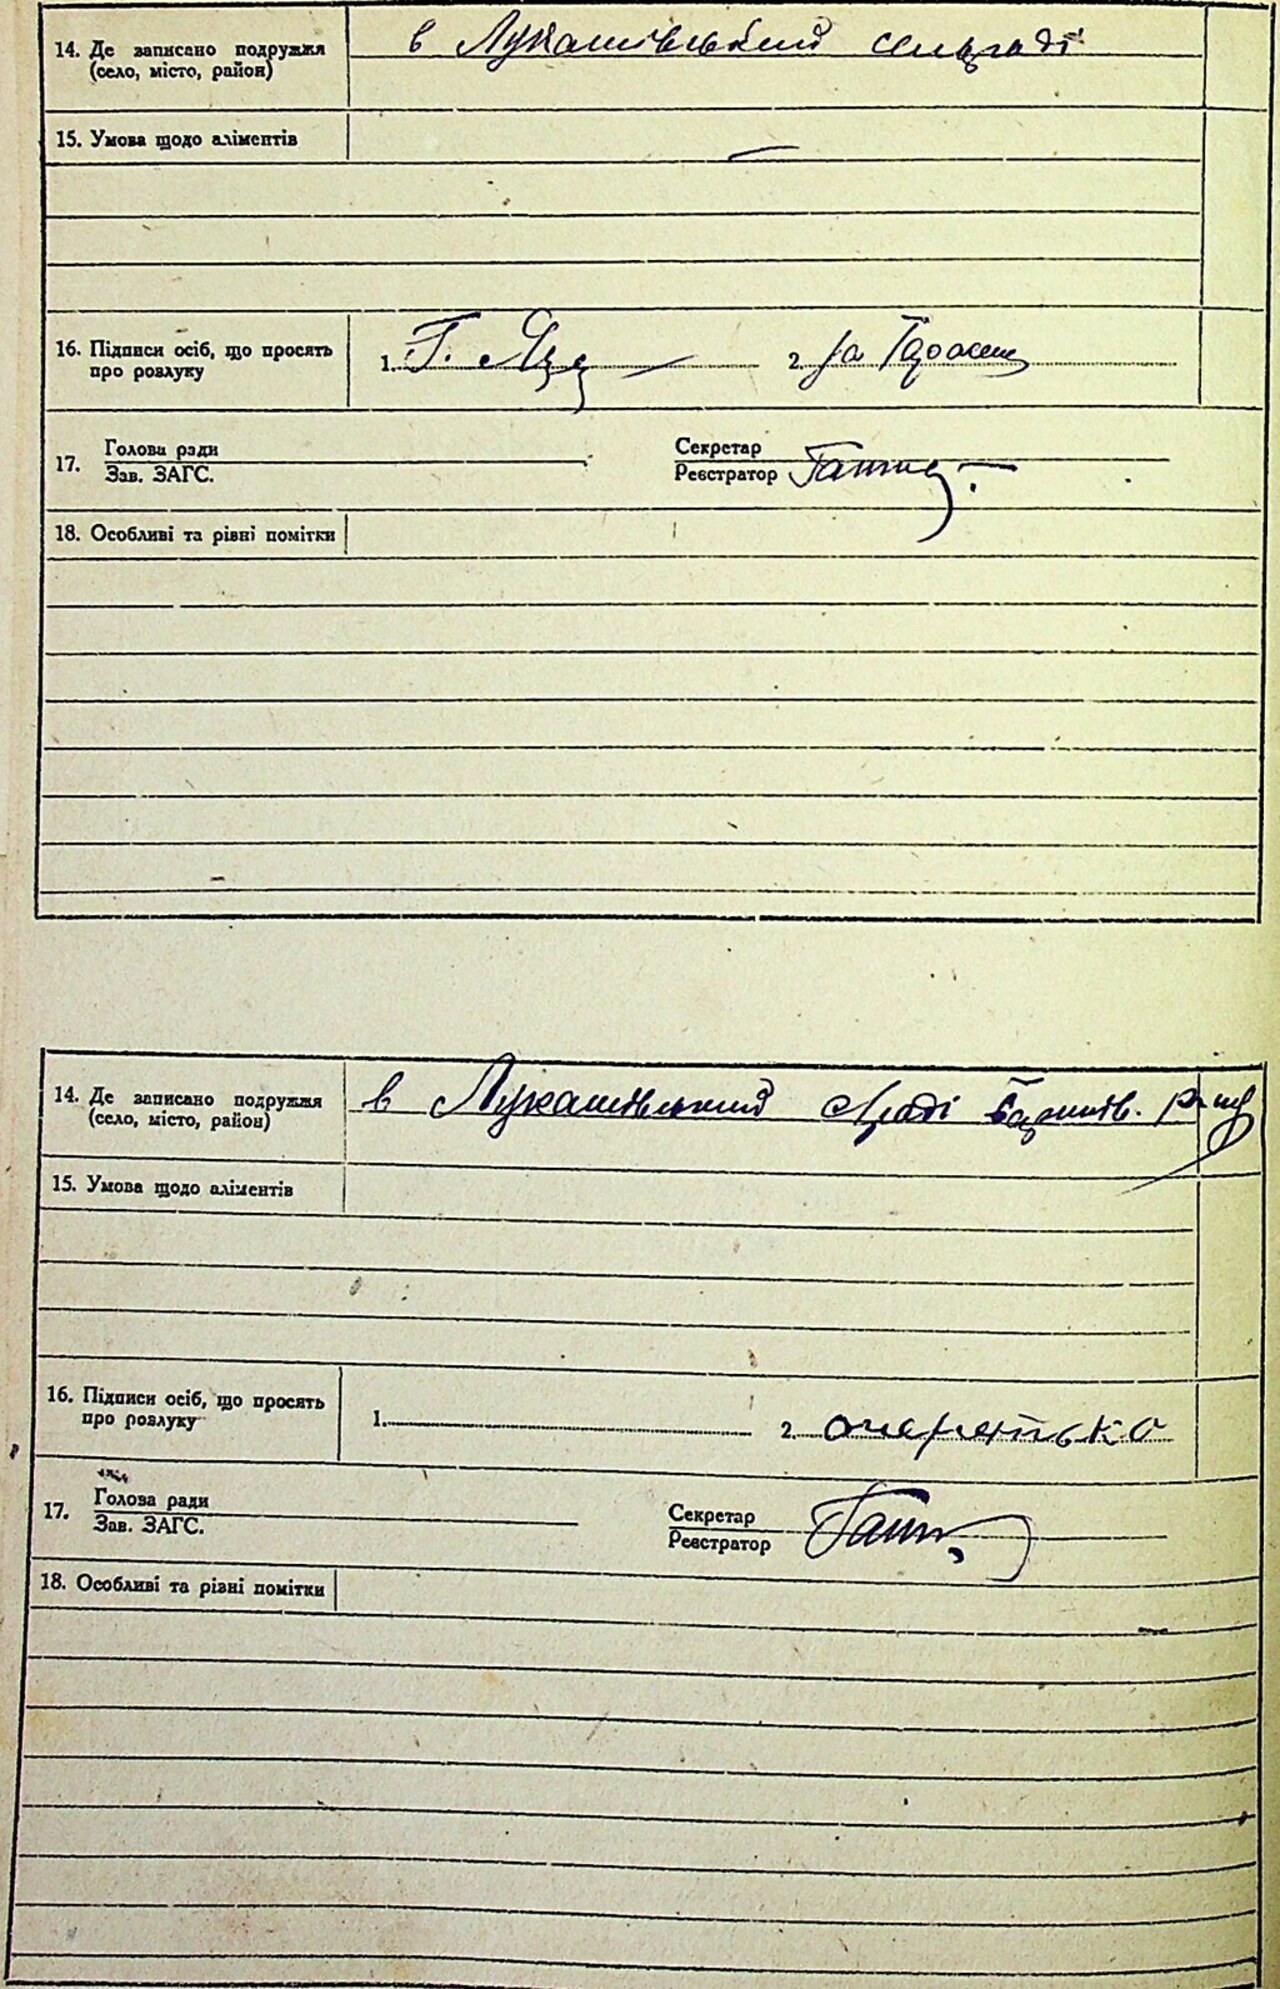 14. Де записано подружжя
(село, місто, район)
в Лукашівський сельраді
15. Умова щодо аліментів
16. Підписи осіб, що просять
про розлуку
1. Г.
2. за
17. Голова ради
Зав. ЗАГС.
Секретар
Реєстратор
18. Особливі та рівні помітки
14. Де записано подружжя
(село, місто, район)
в Лукашівський
15. Умова щодо аліментів
16. Підписи осіб, що просять
про розлуку
1.
2. очеретько
17. Голова ради
Зав. ЗАГС.
Секретар
Реєстратор
18. Особливі та різні помітки